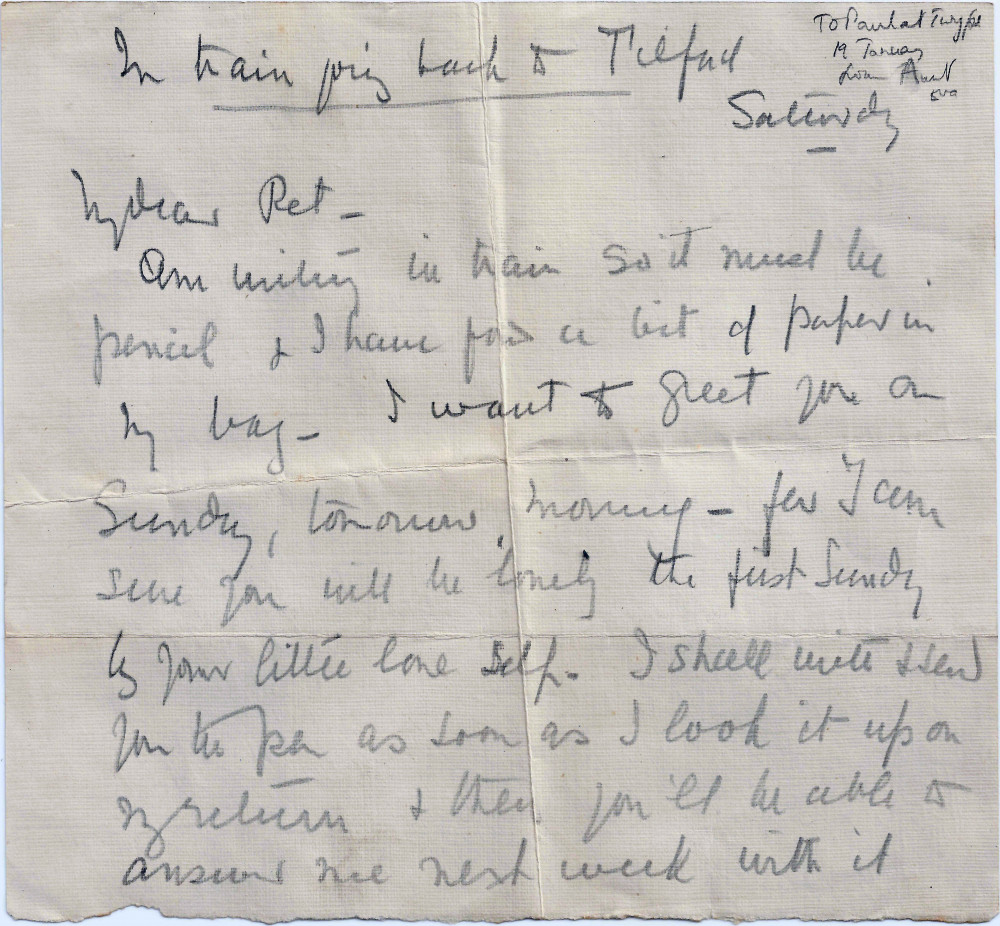 To Paul at Twyford
19 January
from Aunt
Eva
In train going back to Tilford
Saturday
My dear Pet –
Am writing in train so it must be
pencil & I have found a bit of paper in
my bag – I want to greet you on
Sunday, tomorrow, morning – for I am
sure you will be lonely the first Sunday
by your little lone self – I shall write & send
you the pen as soon as I look it up on
my return & then you'll be able to
answer me next week with it